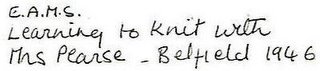 E.A.M.S.
Learning to Knit with
Mrs Pearse - Belfield 1946